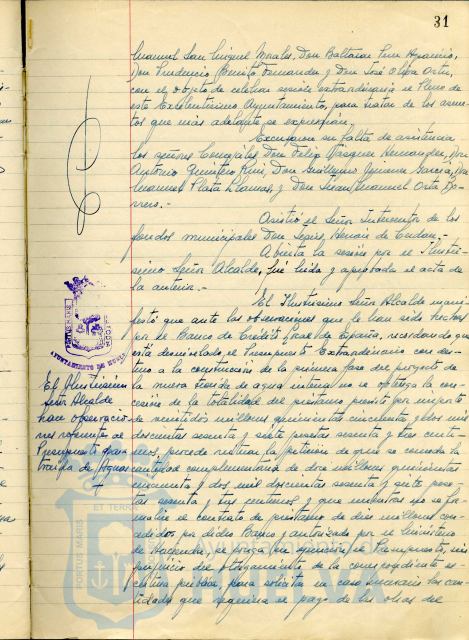 31
Manuel San Miguel Morales, Don Baltasar
Don Prudencio Benito Fernandez y Don José Oliva Ortiz,
con el objeto de celebrar sesión extraordinaria el Pleno de
este Excelentísimo Ayuntamiento, para tratar de los asun-
tos que más adelante se expresarán.
Excusaron su falta de asistencia
los señores Concejales Don Felix Vázquez Hernandez, Don
Antonio Quintero Don Guillermo Jimenez Don
Manuel Plata Llamas, y Don Juan Manuel Orta
rrero.
Asistió el Señor Interventor de los
fondos municipales Don
Abierta la sesión por el Ilustri-
simo Señor Alcalde, fué leida y aprobada el acta de
la anterior.
El Ilustrisimo Señor Alcalde mani-
festó que ante las observaciones que le han sido hechas
por el Banco de Crédito Local de España, recordando que
está el Presupuesto Extraordinario con des-
tino a la construcción de la primera fase del proyecto de
la nueva traida de aguas no se obtenga la con-
cesión de la totalidad del préstamo previsto por importe
de veintidos millones quinientas cincuenta y dos mil
doscientas sesenta y siete pesetas sesenta y tres centi-
mos, procede la petición de que se conceda la
cantidad complementaria de doce millones quinientas
cincuenta y dos mil doscientas sesenta y siete pese-
tas sesenta y tres centimos y que mientras no se for-
malice el contrato de préstamo de diez millones con-
cedidos por dicho Banco y autorizado por el Ministerio
de Hacienda, se ponga en ejecución el Presupuesto, sin
perjuicio del otorgamiento de la correspondiente es-
critura publica, para solicitar en caso necesario las can-
tidades que requiera el pago de las obras del
El Ilustrisimo
Señor Alcalde
hace observacio-
nes referentes al
Presupuesto para
traida de Aguas
AYUNTAMIENTO DE HUELVA
PORTUS MARIS
ET TERRAE